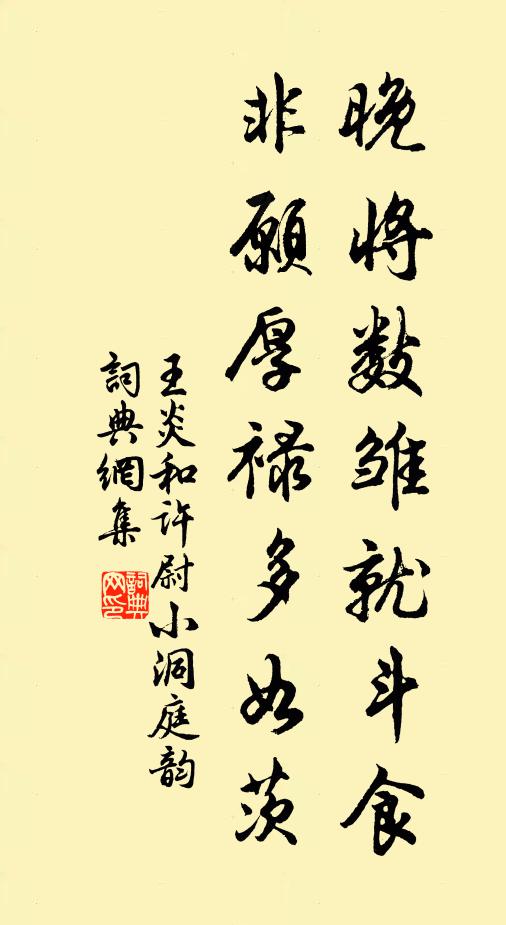 晚將數雛就斗食
非願厚祿多如茨
王炎和許尉小洞庭韵
詞典網集
詞典
网印